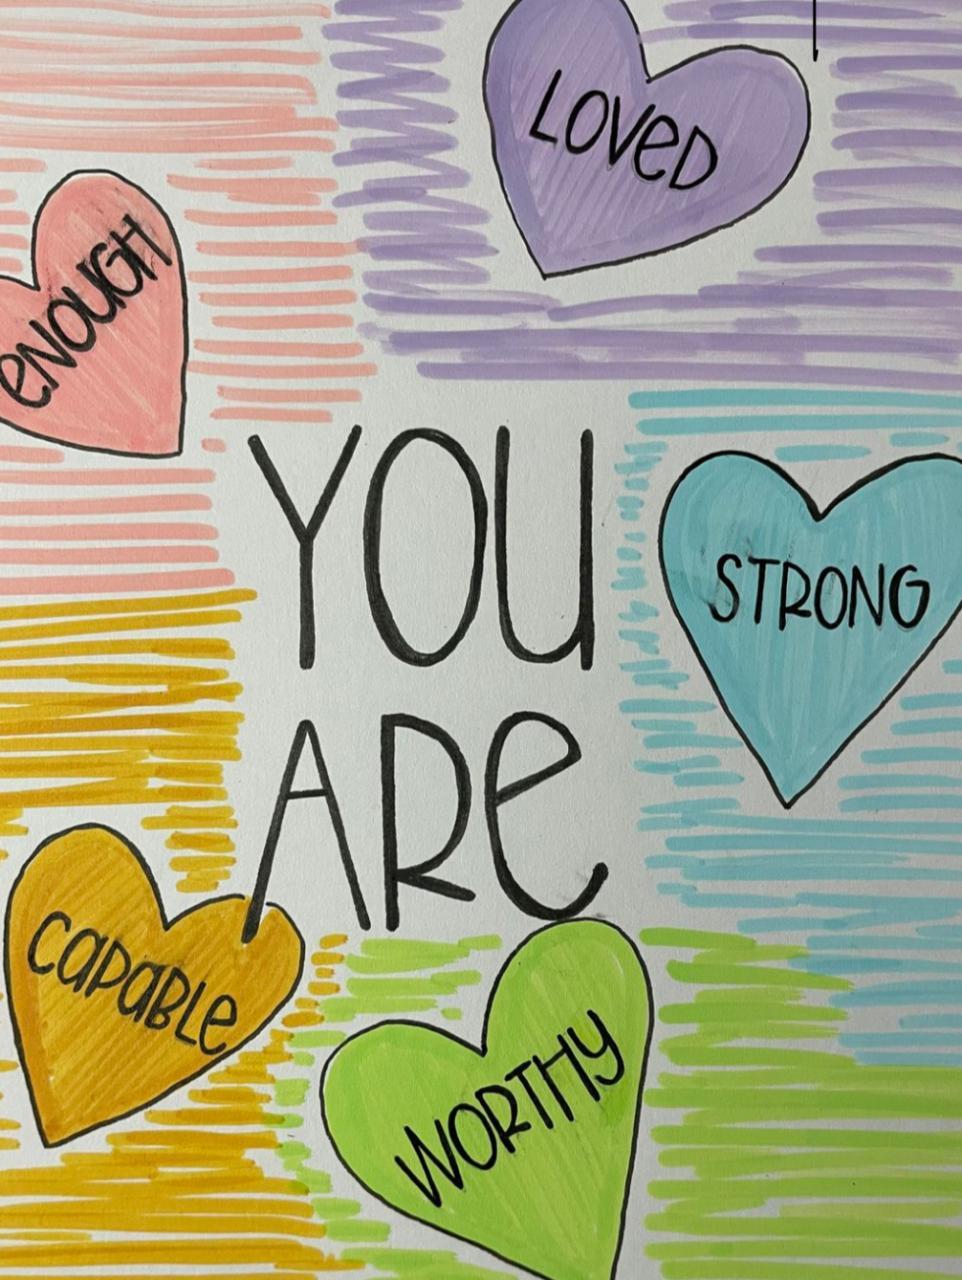 LOVeD
eNOUGH
YOU
ARe
STRONG
CaPaBLe
WORTHY